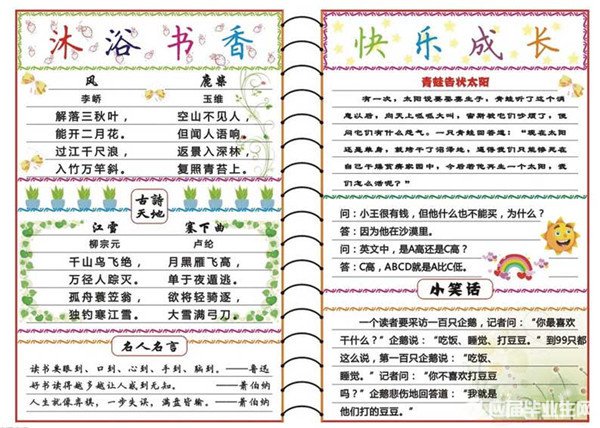 沐浴书香
风
李峤
解落三秋叶，
能开二月花。
过江千尺浪，
入竹万竿斜。
鹿柴
玉维
空山不见人，
但闻人语响。
返景入深林，
复照青苔上。
古诗
天地
江雪
柳宗元
千山鸟飞绝，
万径人踪灭。
孤舟蓑笠翁，
独钓寒江雪。
塞下曲
卢纶
月黑雁飞高，
单于夜遁逃。
欲将轻骑逐，
大雪满弓刀。
名人名言
读书要眼到、口到、心到、手到、脑到。——鲁迅
好书读得越多越让人感到无知。——萧伯纳
人生就像弈棋，一步失误，满盘皆输。——萧伯纳
快乐成长
青蛙告状太阳
有一次，太阳说要娶妻生子，青蛙听了这个消
息以后，向天上呱呱大叫，宙斯被它们吵烦了，便
问它们有什么怨气。一只青蛙回答道：“现在太阳
还是单身，就烤干了沼泽地，逼得我们只能惨死在
自己干燥贫瘠家园中，今后若他再生一个太阳，我
们怎么活呢？”
问：小王很有钱，但他什么也不能买，为什么？
答：因为他在沙漠里。
问：英文中，是A高还是C高？
答：C高，ABCD就是A比C低。
小笑话
一个读者要采访一百只企鹅，记者问：“你最喜欢
干什么？”企鹅说：“吃饭、睡觉、打豆豆。”到99只都
这么说，第一百只企鹅说：“吃饭、
睡觉。”记者问：“你不喜欢打豆豆
吗？”企鹅悲伤地回答道：“我就是
他们打的豆豆。”
应届毕业生网